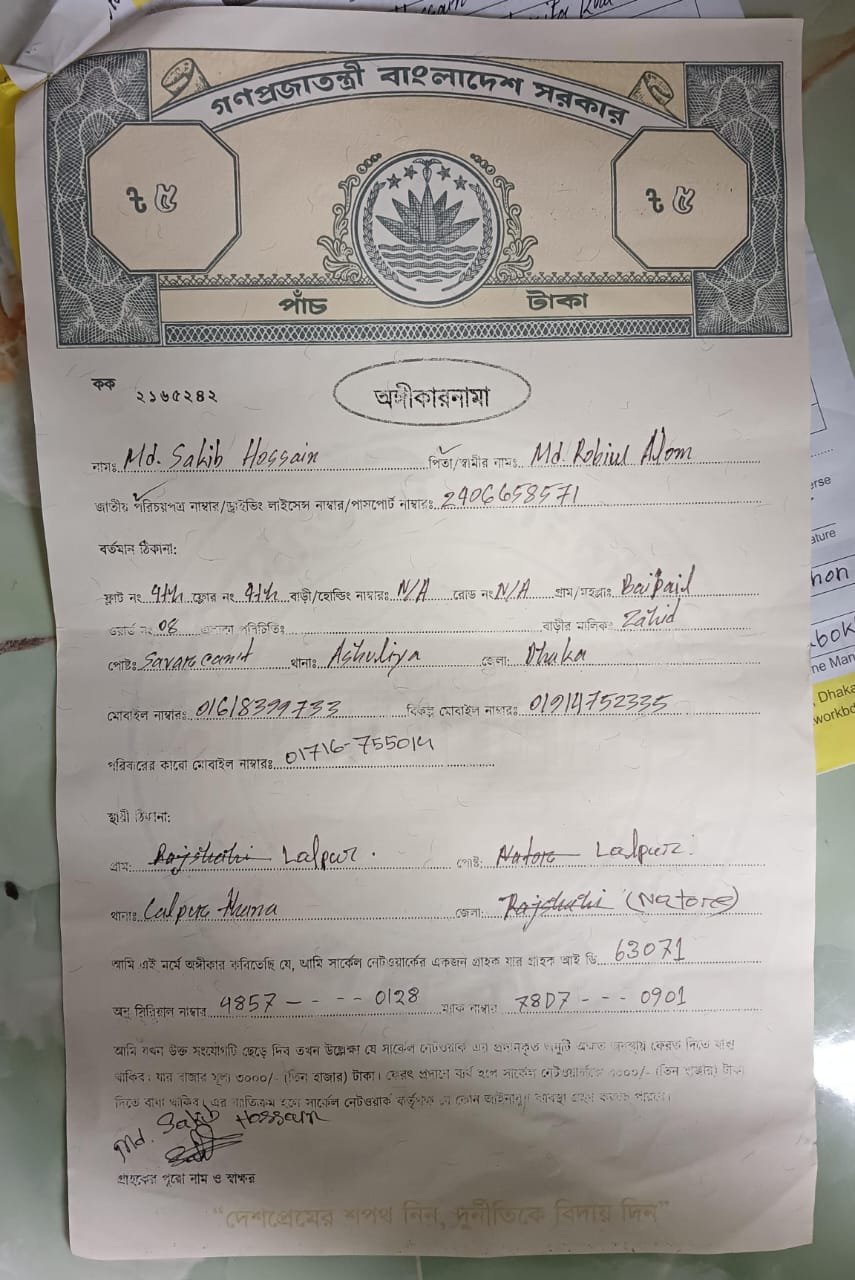 গণপ্রজাতন্ত্রী বাংলাদেশ সরকার
৳ ৫ ৳ ৫
পাঁচ টাকা
কক ২১৬৫২৪২
অঙ্গীকারনামা
নামঃ Md. Sakib Hossain পিতা/স্বামীর নামঃ Md. Robiul Alom
জাতীয় পরিচয়পত্র নাম্বার/ড্রাইভিং লাইসেন্স নাম্বার/পাসপোর্ট নাম্বারঃ 2406658571
বর্তমান ঠিকানা:
ফ্লাট নং 4th ফ্লোর নং 4th বাড়ী/হোল্ডিং নাম্বারঃ N/A রোড নং N/A গ্রাম/মহল্লাঃ Baipail
ওয়ার্ড নং 08 এলাকা পরিচিতিঃ বাড়ীর মালিক: Zahid
পোষ্টঃ Savar cant থানাঃ Ashuliya জেলা: Dhaka
মোবাইল নাম্বারঃ 01618399733 বিকল্প মোবাইল নাম্বারঃ 01914752335
পরিবারের কারো মোবাইল নাম্বারঃ 01716-755014
স্থায়ী ঠিকানা:
গ্রাম: Rajshahi Lalpur. পোষ্ট: Natore Lalpur.
থানাঃ Lalpur thana জেলা: Rajshahi (Natore)
আমি এই মর্মে অঙ্গীকার করিতেছি যে, আমি সার্কেল নেটওয়ার্কের একজন গ্রাহক যার গ্রাহক আই ডি 63071
অনু সিরিয়াল নাম্বার 4857 - - - - 0128 ম্যাক নাম্বার 78D7 - - - 0901
আমি যখন উক্ত সংযোগটি ছেড়ে দিব তখন উল্লেখ্য যে সার্কেল নেটওয়ার্ক এর প্রদানকৃত অনুটি অক্ষত অবস্থায় ফেরত দিতে বাধ্য
থাকিব। যার বাজার মূল্য ৩০০০/- (তিন হাজার) টাকা। ফেরৎ প্রদানে ব্যর্থ হলে সার্কেল নেটওয়ার্ককে ৩০০০/- (তিন হাজার) টাকা
দিতে বাধ্য থাকিব। এর ব্যতিক্রম হলে সার্কেল নেটওয়ার্ক কর্তৃপক্ষ যে কোন আইনানুগ ব্যবস্থা গ্রহণ করতে পারবে।
Md. Sakib Hossain
গ্রাহকের পুরো নাম ও স্বাক্ষর
"দেশপ্রেমের শপথ নিন, দুর্নীতিকে বিদায় দিন"